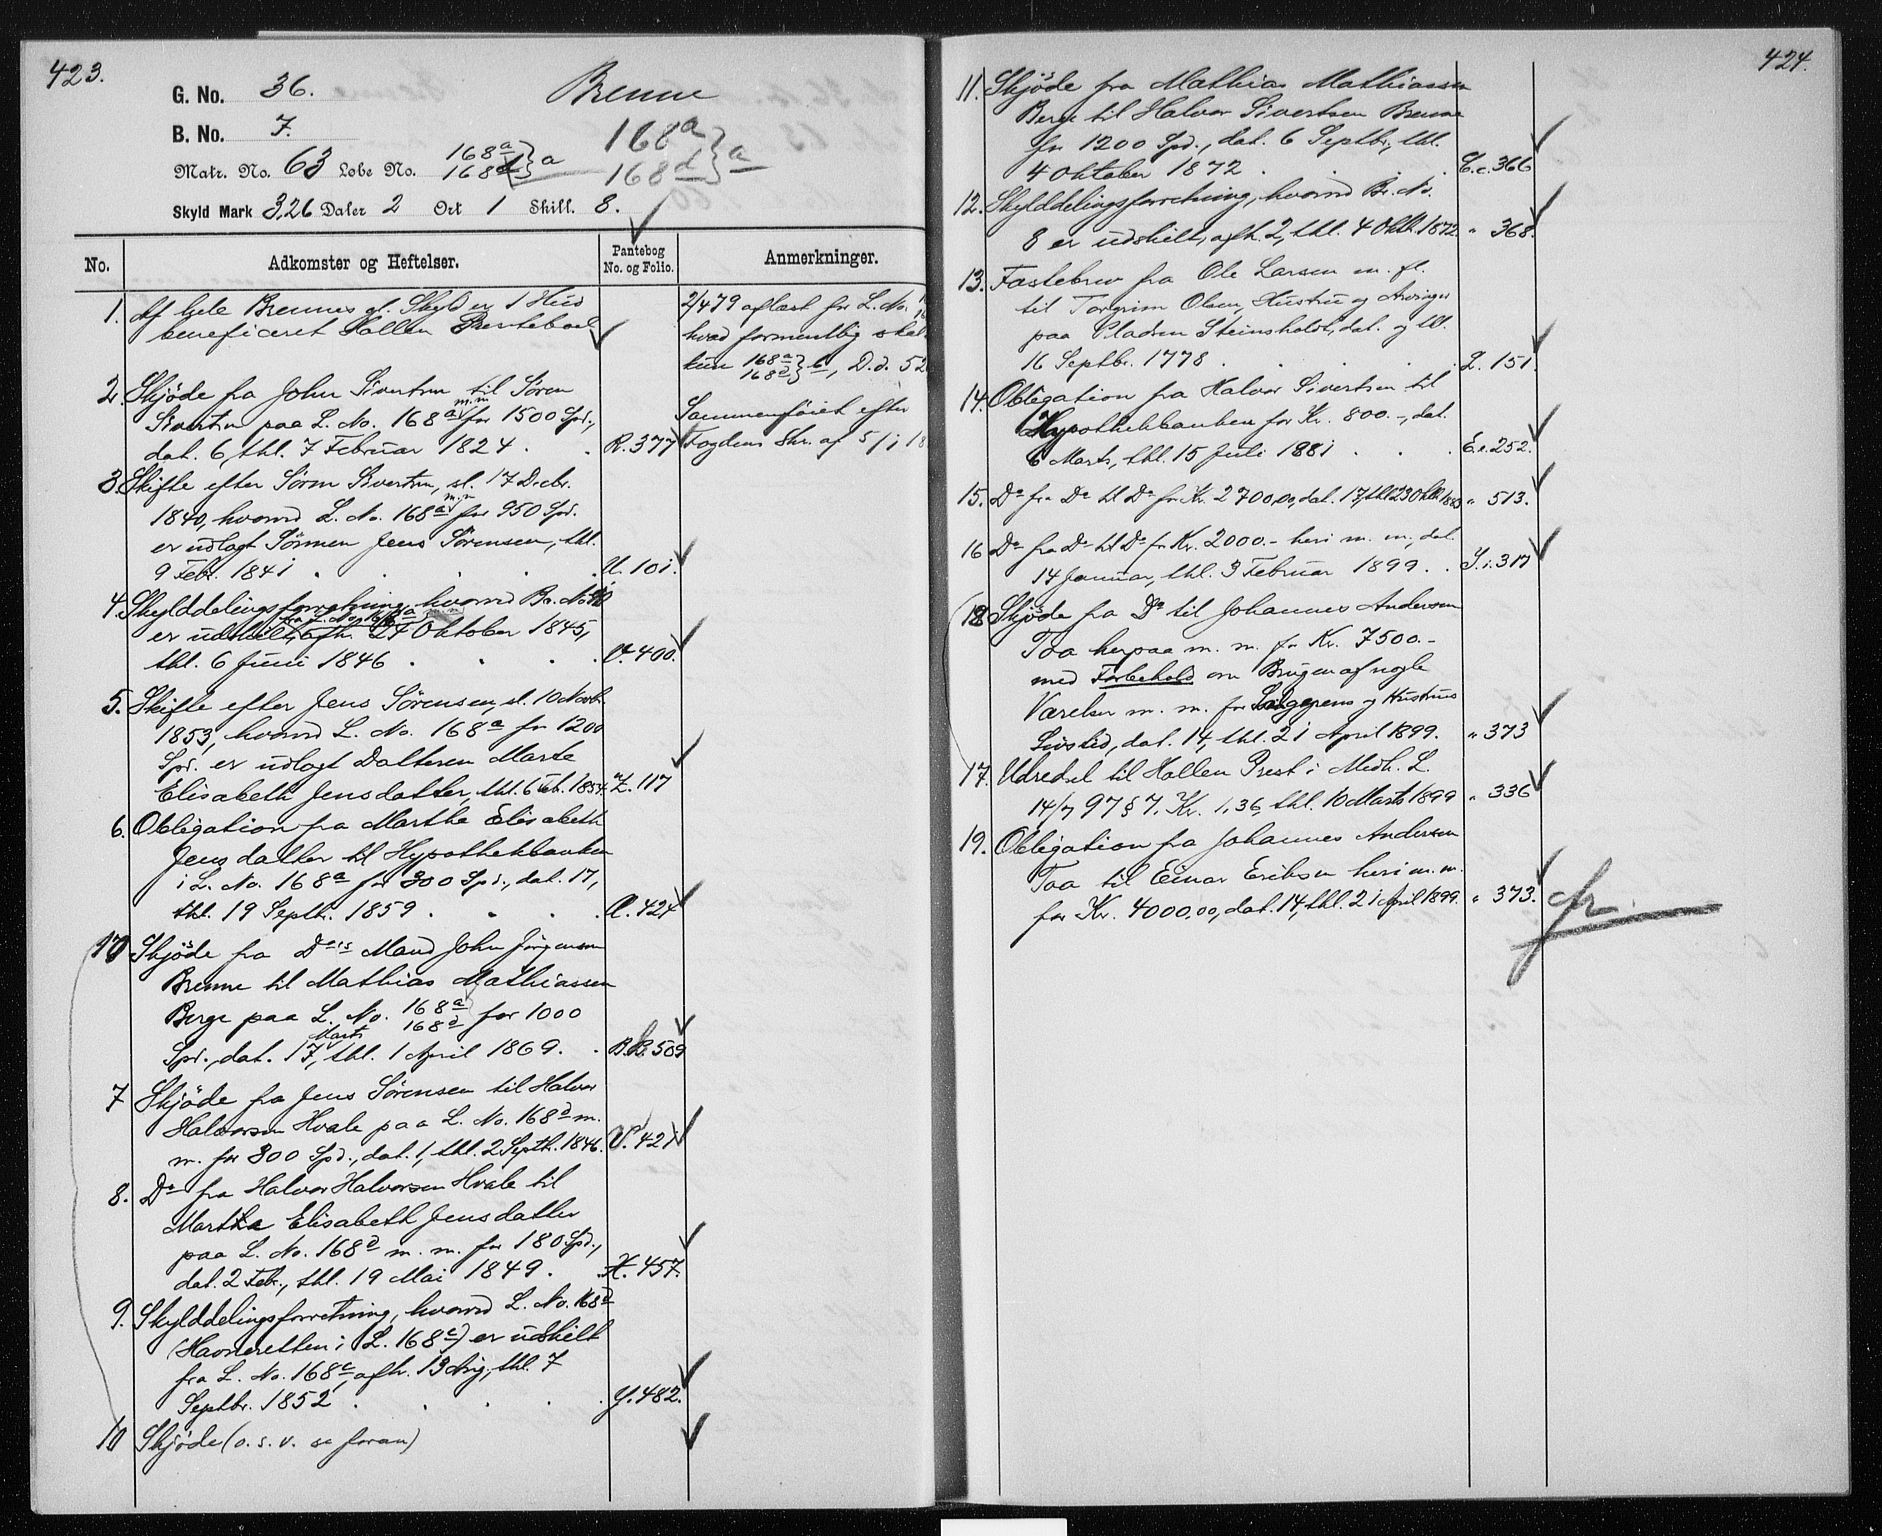 423.
G. No. 36. Brenne
B. No. 7.
168a
168d } a
Matr. No. 63 Løbe No. 168a 168d } a
Skyld Mark 3,26 Daler 2 Ort 1 Skill. 8.
No. Adkomster og Heftelser. Pantebog No. og Folio. Anmerkninger.
1. Af hele Brennes gl. Skyld er 1 Hud
beneficeret Hollen Presteboel
2/479 aflæst for L. No.
hvad formentlig skal
kun 168a 168d } b, D.d. 52
2. Skjöde fra John Sivertsen til Sören
Sivertsen paa L. No. 168a m.m for 1500 Spd.,
dat. 6, thl. 7 Februar 1824 . . R. 377
Sammenföiet efter
Fogdens Skr. af 5/1 18
3. Skifte efter Sören Sivertsen, sl. 17 Decbr.
1840, hvorved L. No. 168a m.m for 950 Spd.
er udlagt Sönnen Jens Sörensen, thl.
9 Febr. 1841 . . . . U. 101.
4. Skylddelingsforretning, hvorved Br. No.
er udskilt fra L. No. 168a m.m, afh. 24 Oktober 1845,
thl. 6 Juni 1846 . . . . V. 400.
5. Skifte efter Jens Sörensen, sl. 10 Novbr.
1853, hvorved L. No. 168a for 1200
Spd. er udlagt Datteren Marte
Elisabeth Jensdatter, thl. 6 Feb. 1854. Z. 117
6. Obligation fra Marthe Elisabeth
Jensdatter til Hypothekbanken
i L. No. 168a for 300 Spd., dat. 17,
thl. 19 Septbr. 1859 . . . . A. 424
10 Skjöde fra Do's Mand John Jörgensen
Brenne til Mathias Mathiassen
Berge paa L. No. 168a 168d for 1000
Spd., dat. 17 Marts, thl. 1 April 1869. . B.B. 509
7 Skjöde fra Jens Sörensen til Halvor
Halvorsen Hvale paa L. No. 168d m.
m. for 300 Spd., dat. 1, thl. 2 Septbr. 1846. V. 421
8. Do fra Halvor Halvorsen Hvale til
Martha Elisabeth Jensdatter
paa L. No. 168d m. m. for 180 Spd.,
dat. 2 Febr., thl. 19 Mai 1849. . X. 457.
9. Skylddelingsforretning, hvorved L. No. 168d
(Havneretten i L. 168c) er udskilt
fra L. No. 168c, afh. 13 Aug., thl. 7
Septbr. 1852 . . . . Y. 482.
10 Skjöde (o. s. v. se foran)
424.
11. Skjöde fra Mathias Mathiassen
Berge til Halvor Sivertsen Brenne
for 1200 Spd., dat. 6 Septbr., thl.
4 Oktober 1872 . . . . C.c. 366
12. Skylddelingsforretning, hvorved Br. No.
8 er udskilt, afh. 2, thl. 4 Oktbr. 1872. " 368.
13. Fæstebrev fra Ole Larsen m. fl.
til Torgrim Olsen, Hustru og Arvinger
paa Pladsen Steinsholdt, dat. og thl.
16 Septbr. 1778 . . . . L. 151.
14. Obligation fra Halvor Sivertsen til
Hypothekbanken for Kr. 800.-, dat.
6 Marts, thl. 15 Juli 1881 . . . E.e. 252.
15. Do fra Do til Do for Kr. 2700,00, dat. 17, thl. 23 Oktbr. 1883 " 513.
16 Do fra Do til Do for Kr. 2000.- heri m. m., dat.
14 Januar, thl. 3 Februar 1899. . I.i. 317
18 Skjöde fra Do til Johannes Andersen
Toa herpaa m. m. for Kr. 7500.-
med Forbehold om Brugen af nogle
Værelser m. m. for Sælgerens og Hustrus
Livstid, dat. 14, thl. 21 April 1899. " 373
17. Udredsel til Hollen Prest i Medh. L.
14/7 97 § 7. Kr. 1,36, thl. 10 Marts 1899 " 336
19. Obligation fra Johannes Andersen
Toa til Einar Eriksen heri m. m.
for Kr. 4000,00, dat. 14, thl. 21 April 1899. " 373.